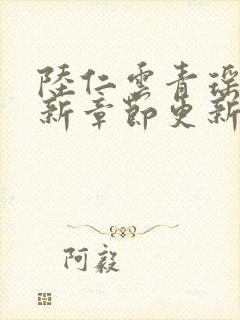 陸仁雲青瑤
新章節更新
阿毅